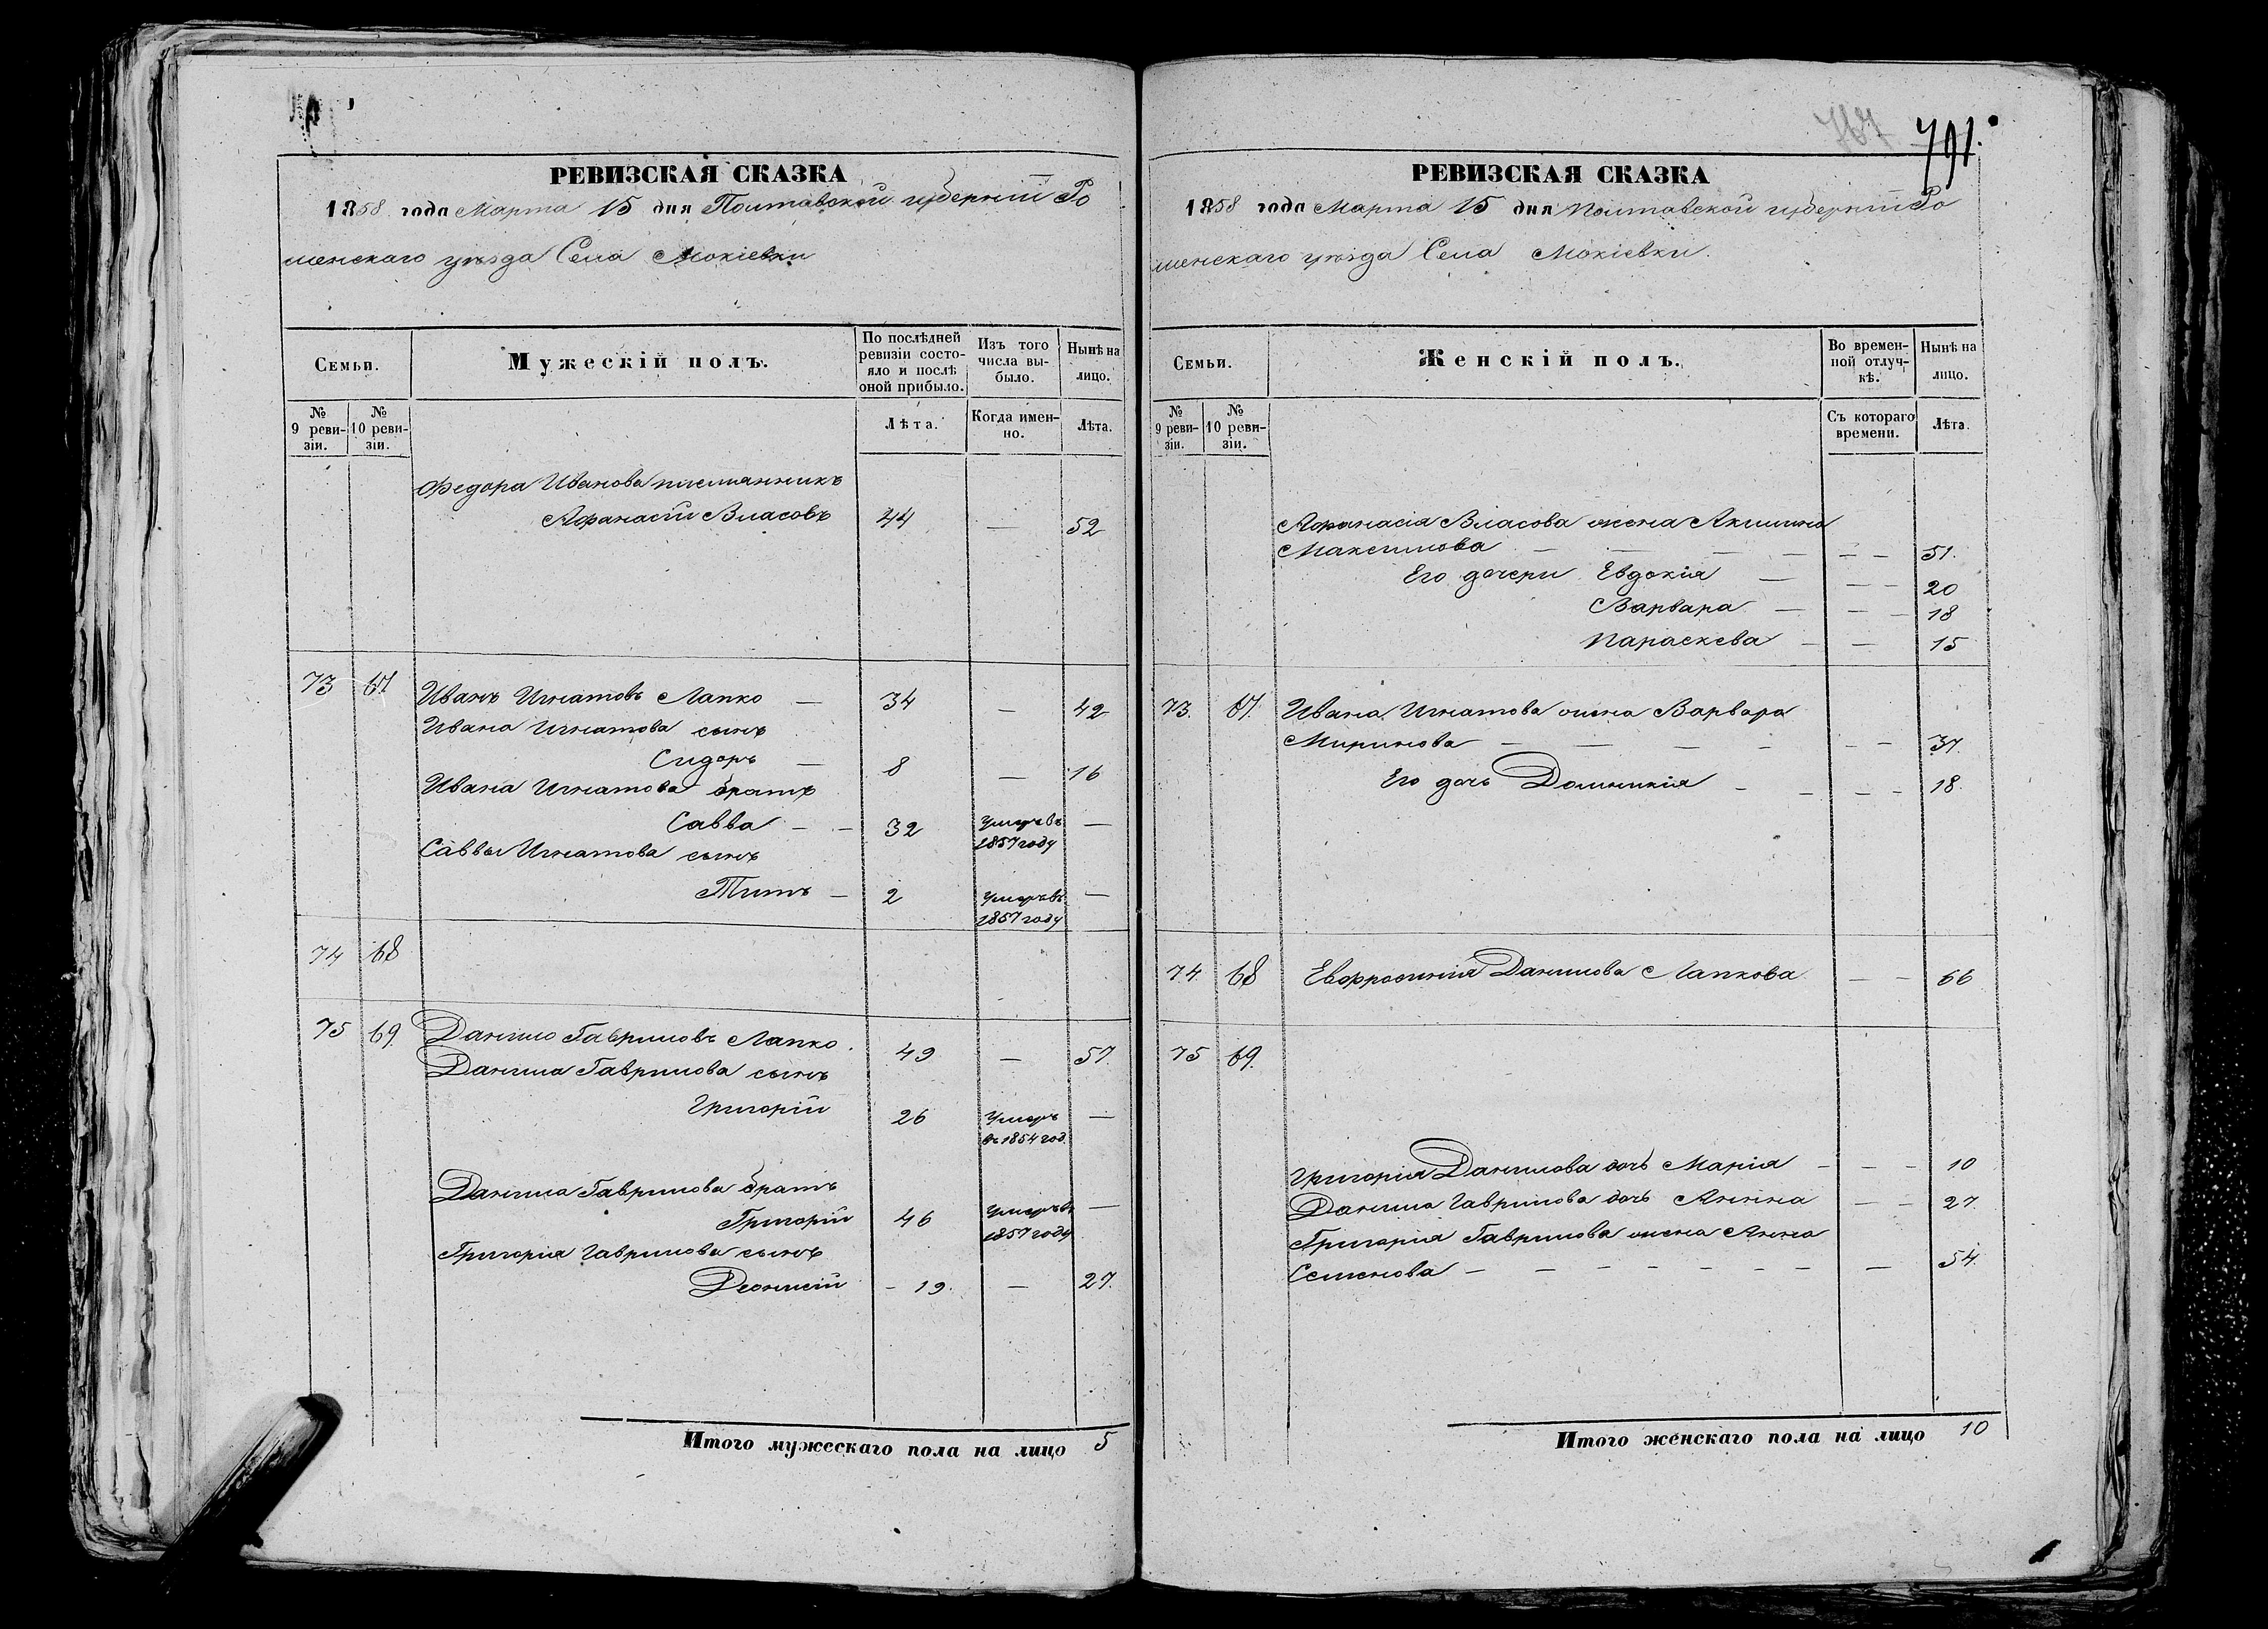 РЕВИЗСКАЯ СКАЗКА
1858 года Марта 15 дня Полтавской губернии Ро
менскаго уѣзда Села Мокіевки
Семьи.
Мужескій полъ.
По послѣдней ревизіи состояло и послѣ оной прибыло.
Изъ того числа выбыло.
Нынѣ на лицо.
№ 9 ревизіи.
№ 10 ревизіи.
Лѣта.
Когда именно.
Лѣта.
Федора Иванова племянникъ
Афанасій Власовъ 44 — 52
73 67 Иванъ Игнатовъ Лапко — 34 — 42
Ивана Игнатова сынъ
Сидоръ — 8 — 16
Ивана Игнатова братъ
Савва — — 32 Умеръ въ 1857 году —
Саввы Игнатова сынъ
Титъ — 2 Умеръ въ 1857 году —
74 68
75 69. Данило Гавриловъ Лапко. 49 — 57.
Данила Гаврилова сынъ
Григорій 26 Умеръ въ 1854 год. —
Данила Гаврилова братъ
Григорій 46 Умеръ въ 1857 году —
Григорія Гаврилова сынъ
Деонисій — 19. — 27.
Итого мужескаго пола на лицо 5
791.
РЕВИЗСКАЯ СКАЗКА
1858 года Марта 15 дня Полтавской губерніи Ро
менскаго уѣзда Села Мокіевки.
Семьи.
Женскій полъ.
Во временной отлучкѣ.
Нынѣ на лицо.
№ 9 ревизіи.
№ 10 ревизіи.
Съ котораго времени.
Лѣта.
Афанасія Власова жена Акилина
Максимова — — — — — — 51.
Его дочери Евдокія — — — 20
Варвара — — — 18
Параскева — — 15
73. 67. Ивана Игнатова жена Варвара
Миринова — — — — — — 37.
Его дочь Домникія — — — — 18.
74. 68 Евфросинія Данилова Лапкова — — 66
75 69.
Григорія Данилова дочь Марія — — — 10
Данила Гаврилова дочь Анна — — 27.
Григорія Гаврилова жена Анна
Семенова — — — — — — — — 54.
Итого женскаго пола на лицо 10